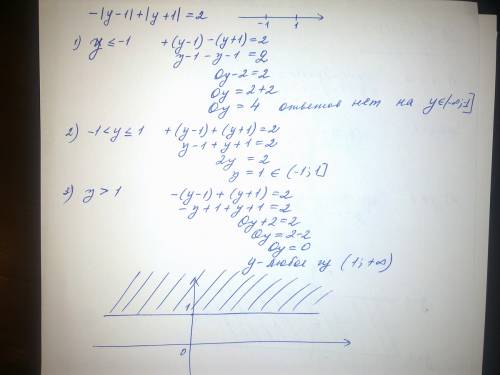 -|y-1|+|y+1|=2
-1 1
1) y ≤ -1 +(y-1)-(y+1)=2
y-1-y-1=2
0y-2=2
0y=2+2
0y=4 ответов нет на y∈(-∞;1]
2) -1<y≤1 +(y-1)+(y+1)=2
y-1+y+1=2
2y=2
y=1∈(-1;1]
3) y>1 -(y-1)+(y+1)=2
-y+1+y+1=2
0y+2=2
0y=2-2
0y=0
y-любое из (1;+∞)
1
0